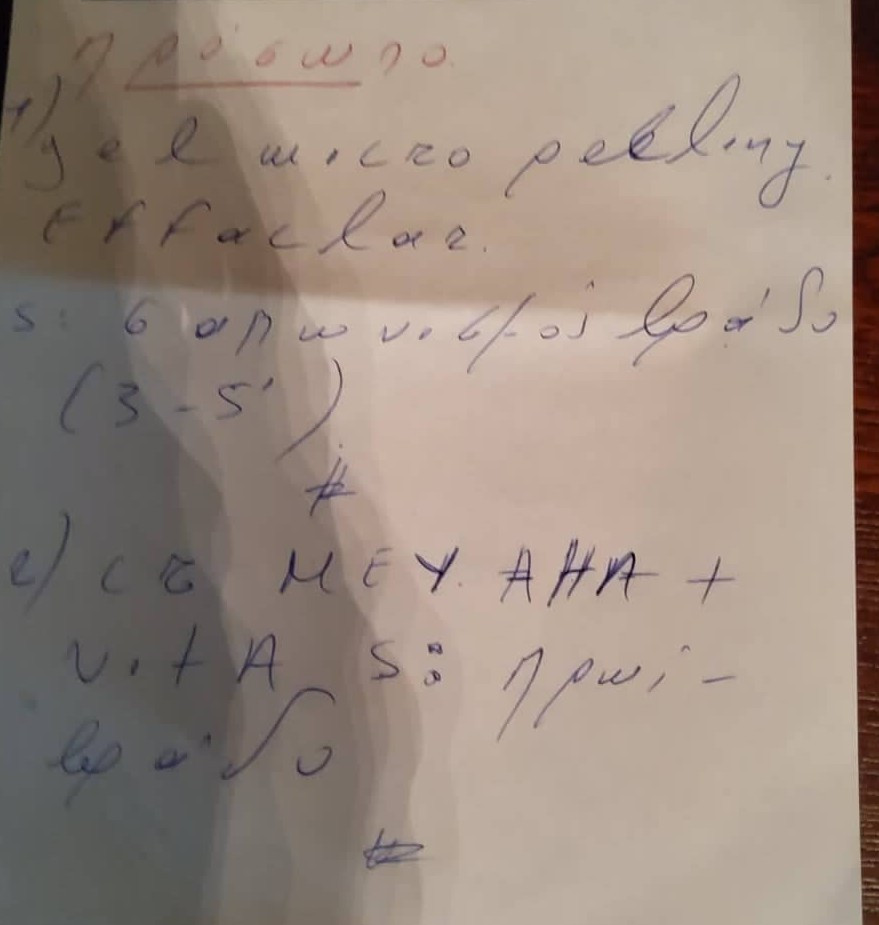 πρόσωπο.
1)
gel micro peeling.
Effaclar.
S: σαπωνισμός βράδυ
(3-5')
#
2) cr MEY AHA +
vit A S: πρωί -
βράδυ
#